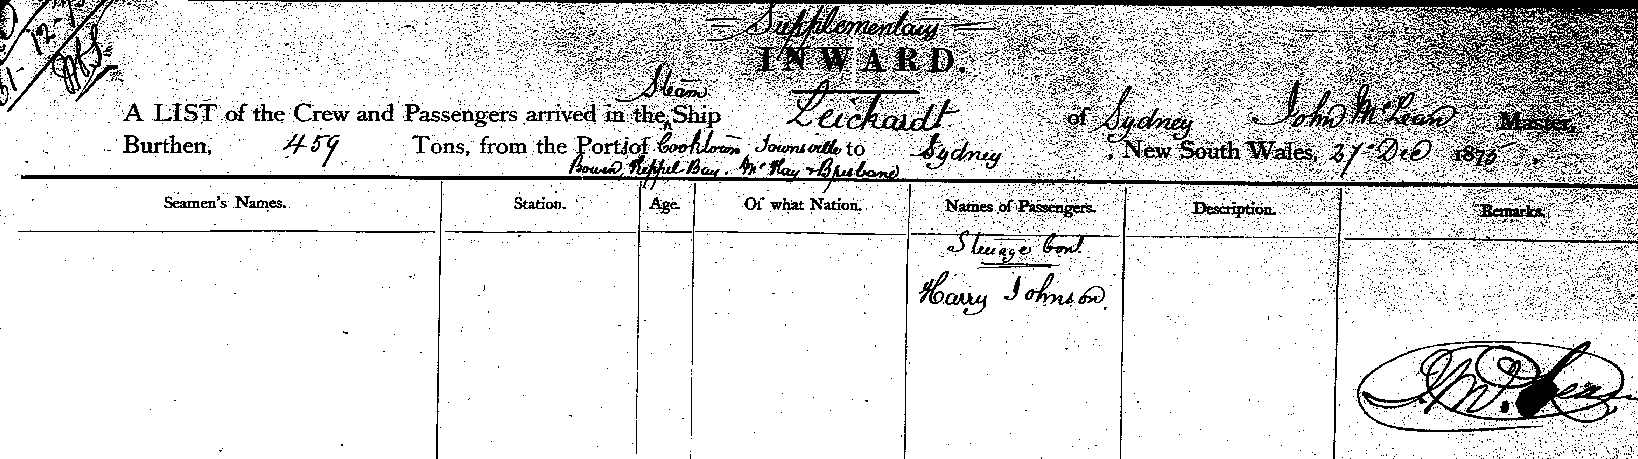 Supplementary
INWARD.
Steam
A LIST of the Crew and Passengers arrived in the Ship Leichardt of Sydney John McLean Master,
Burthen, 459 Tons, from the Port of Cooktown Townsville to Sydney, New South Wales, 27 Dec 1875
Bowen, Keppel Bay. McKay & Brisbane
Seamen's Names. Station. Age. Of what Nation. Names of Passengers. Description. Remarks.
Steerage Cont.
Harry Johnson.
J. McLean